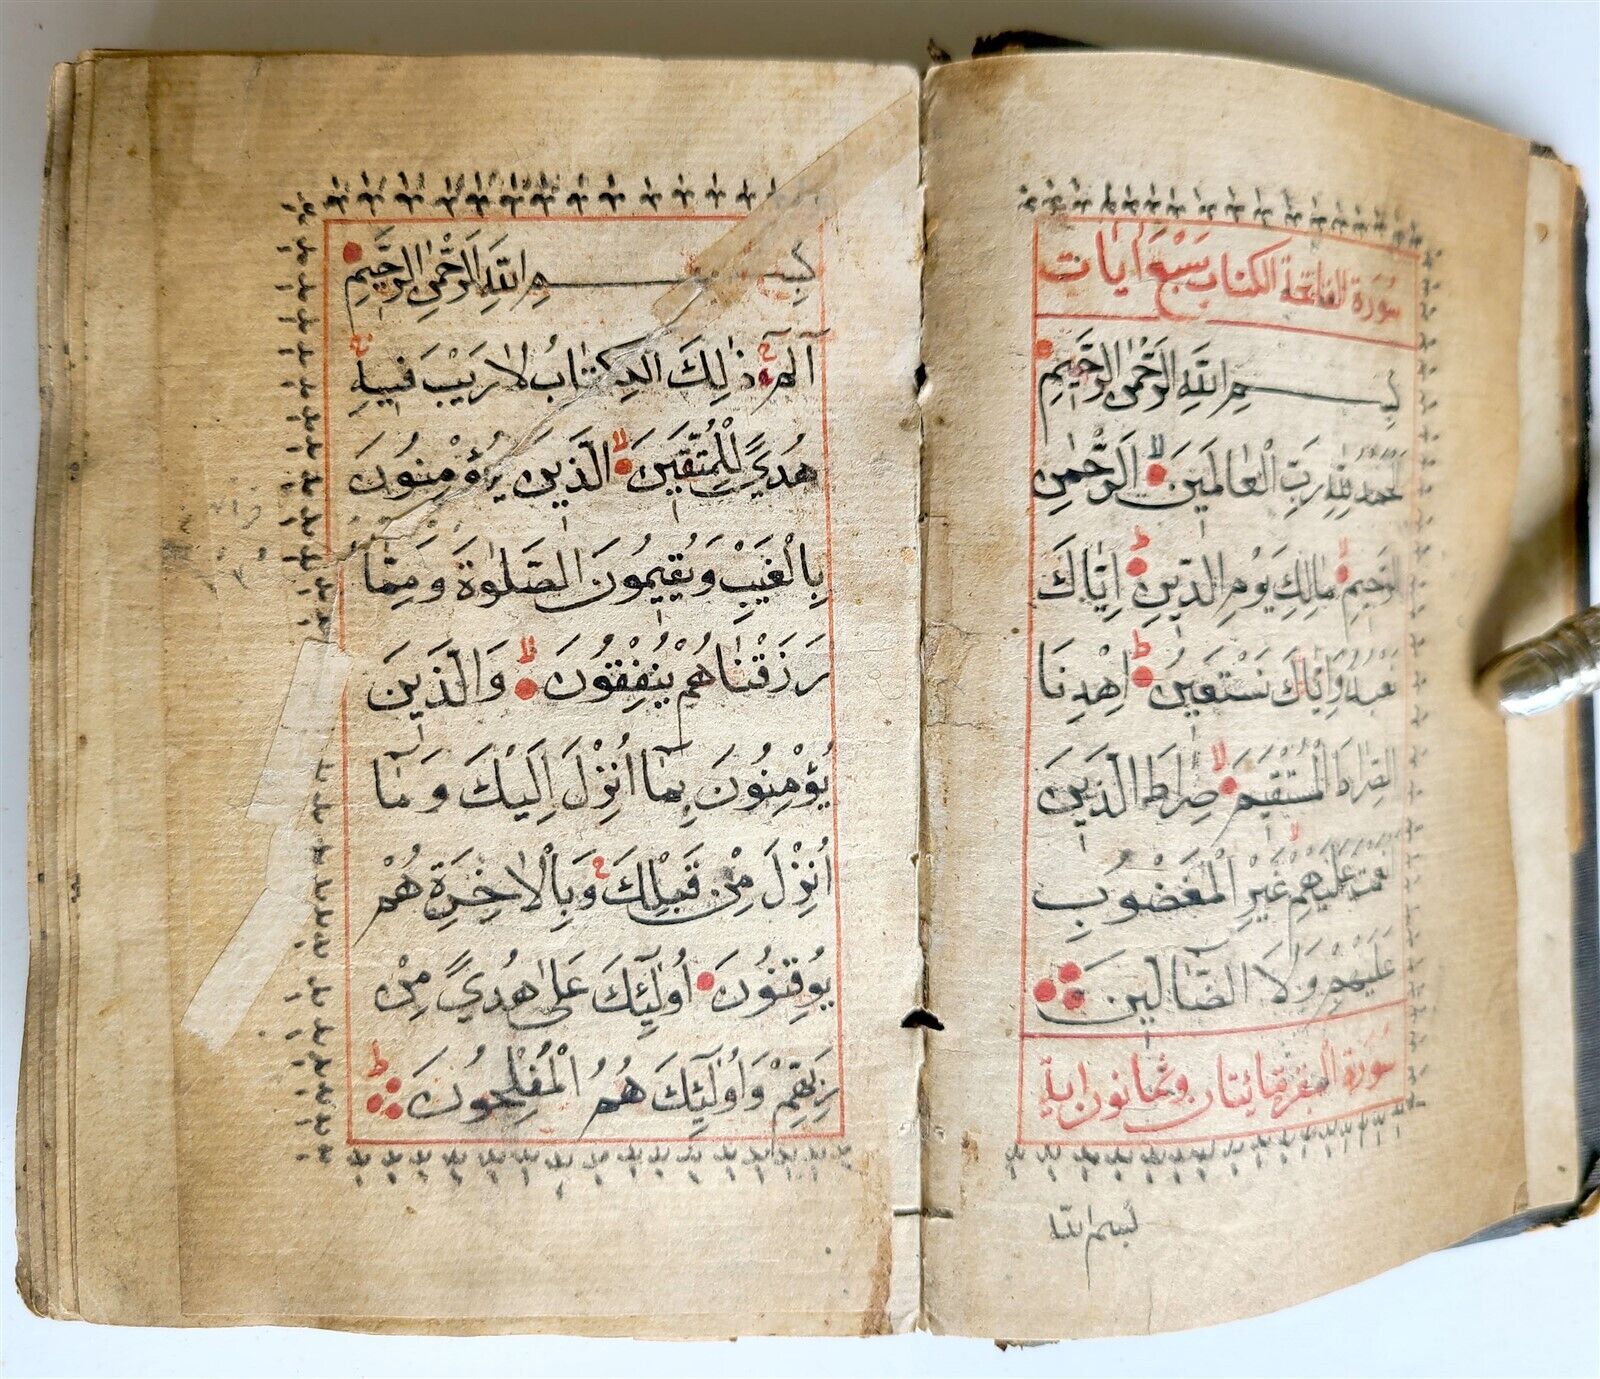 سُورَة الفاتحة الكتاب سَبْعَ آيات
بِسْمِ اللهِ الرَّحْمٰنِ الرَّحِيمِ
الحمد لِلّٰهِ رَبِّ الْعَالَمِينَ الرَّحْمٰنِ
الرَّحِيمِ مَالِكِ يَوْمِ الدِّينِ اِيَّاكَ
نَعْبُدُ وَاِيَّاكَ نَسْتَعِينُ اِهْدِنَا
الصِّرَاطَ الْمُسْتَقِيمَ صِرَاطَ الَّذِينَ
انعمت عَلَيْهِمْ غَيْرِ الْمَغْضُوبِ
عَلَيْهِمْ وَلَا الضَّآلِّينَ
سُورَة البقرة مائيتان وثمانون اية
بسم الله
بِسْمِ اللهِ الرَّحْمٰنِ الرَّحِيمِ
آلم ذٰلِكَ الْكِتَابُ لَا رَيْبَ فِيهِ
هُدًي لِلْمُتَّقِينَ الَّذِينَ يُؤْمِنُونَ
بِالْغَيْبِ وَيُقِيمُونَ الصَّلٰوةَ وَمِمَّا
رَزَقْنَاهُمْ يُنْفِقُونَ وَالَّذِينَ
يُؤْمِنُونَ بِمَآ اُنْزِلَ اِلَيْكَ وَمَآ
اُنْزِلَ مِنْ قَبْلِكَ وَبِالْاٰخِرَةِ هُمْ
يُوقِنُونَ اُولٰٓئِكَ عَلٰى هُدًي مِنْ
رَبِّهِمْ وَاُولٰٓئِكَ هُمُ الْمُفْلِحُونَ